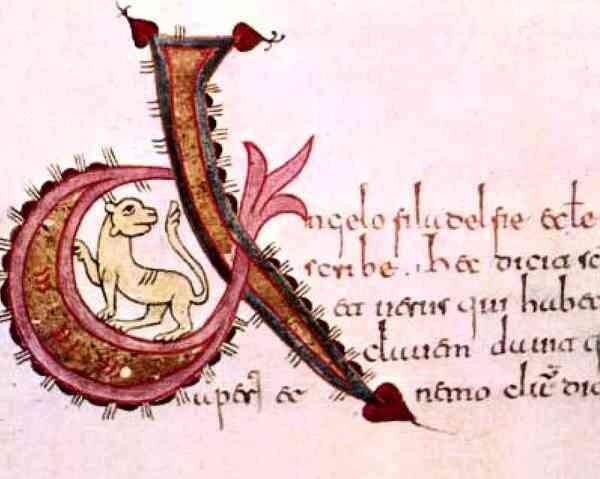 Angelo filadelfie ecle
scribe . hec dicit sc
et uerus qui habe
clauem dauid q
aperit et nemo